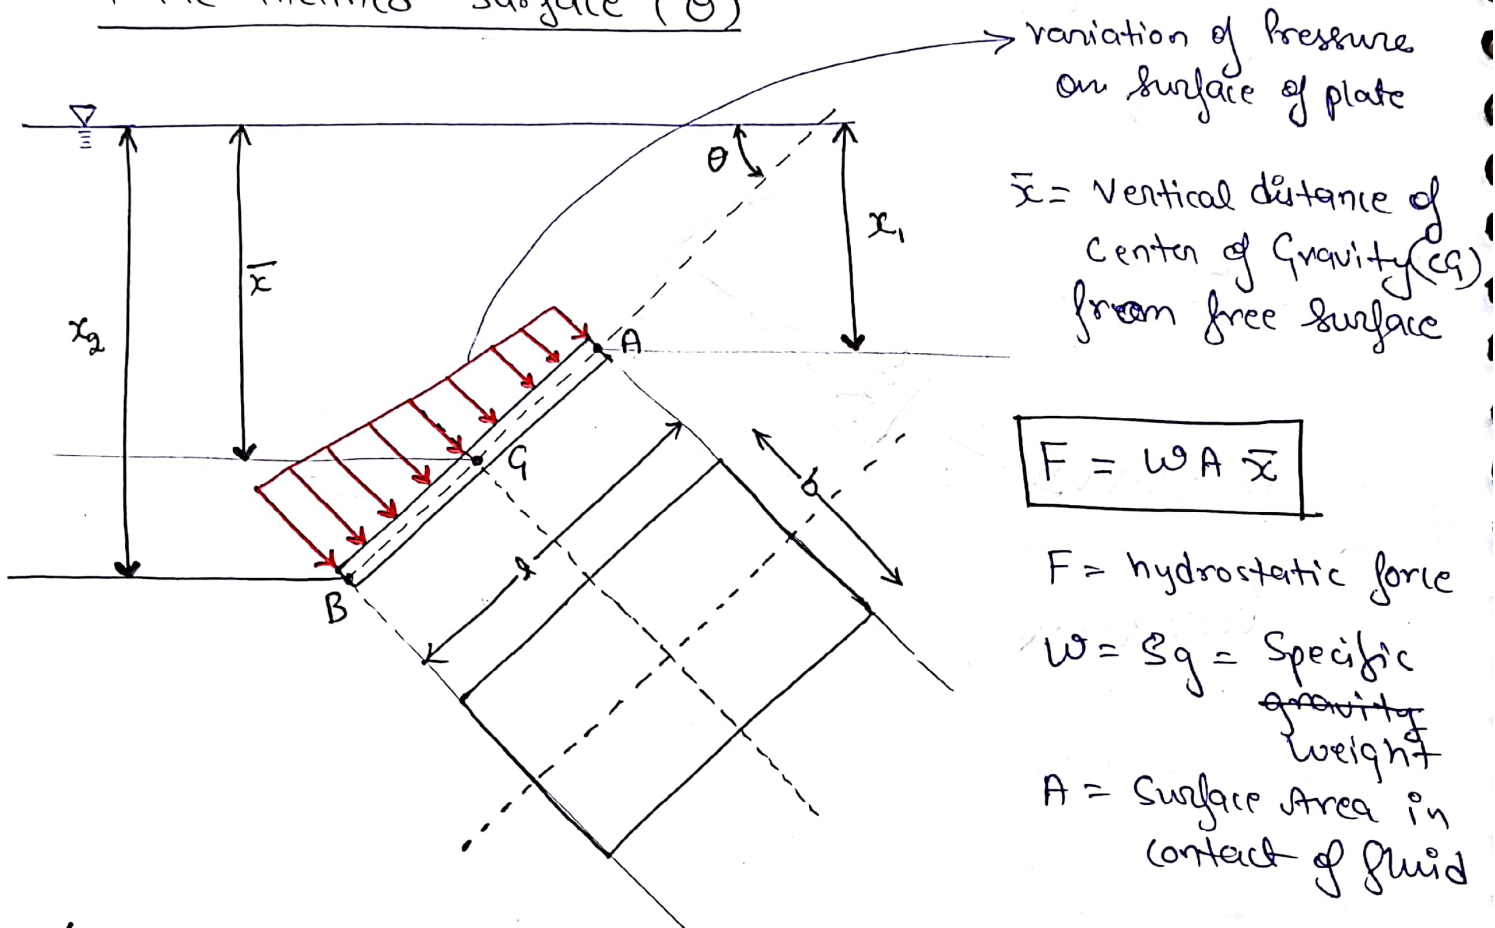 Inclined Surface (θ)
variation of Pressure
on Surface of plate
x̄ = Vertical distance of
Center of Gravity (CG)
from free Surface
θ
x₁
x̄
x₂
A
G
B
l
b
F = W A x̄
F = hydrostatic force
W = ρg = Specific
gravity
weight
A = Surface Area in
contact of fluid